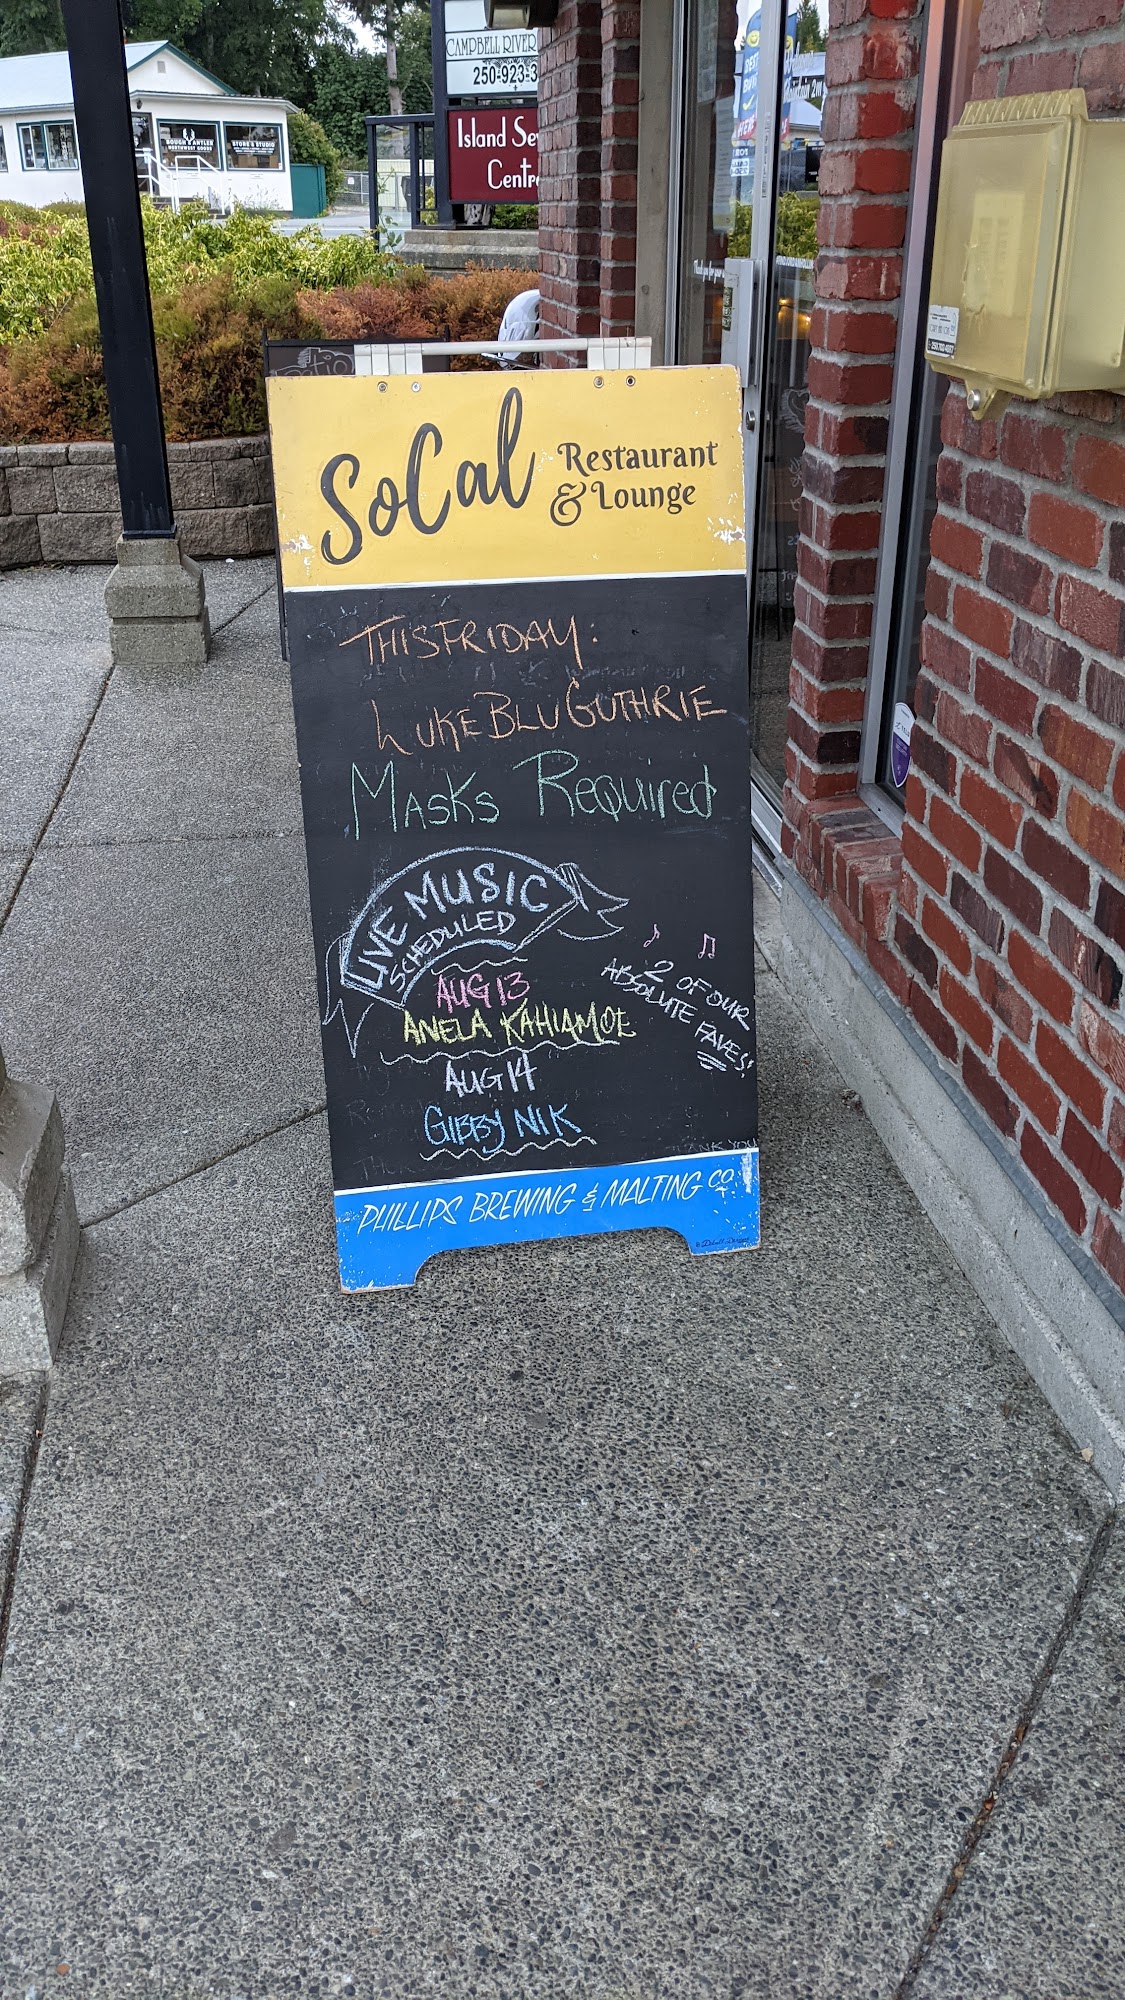 CAMPBELL RIVER
250-923-3
Island Se
Centre
ROUGH & ANTLER
NORTHWEST GOODS
STORE & STUDIO
Patio
SoCal Restaurant
& Lounge
THIS FRIDAY:
LUKE BLU GUTHRIE
MASKS REQUIRED
LIVE MUSIC
SCHEDULED
AUG 13
ANELA KAHIAMOE
AUG 14
GIBBY NIK
2 OF OUR
ABSOLUTE FAVES!
THANK YOU
PHILLIPS BREWING & MALTING CO.